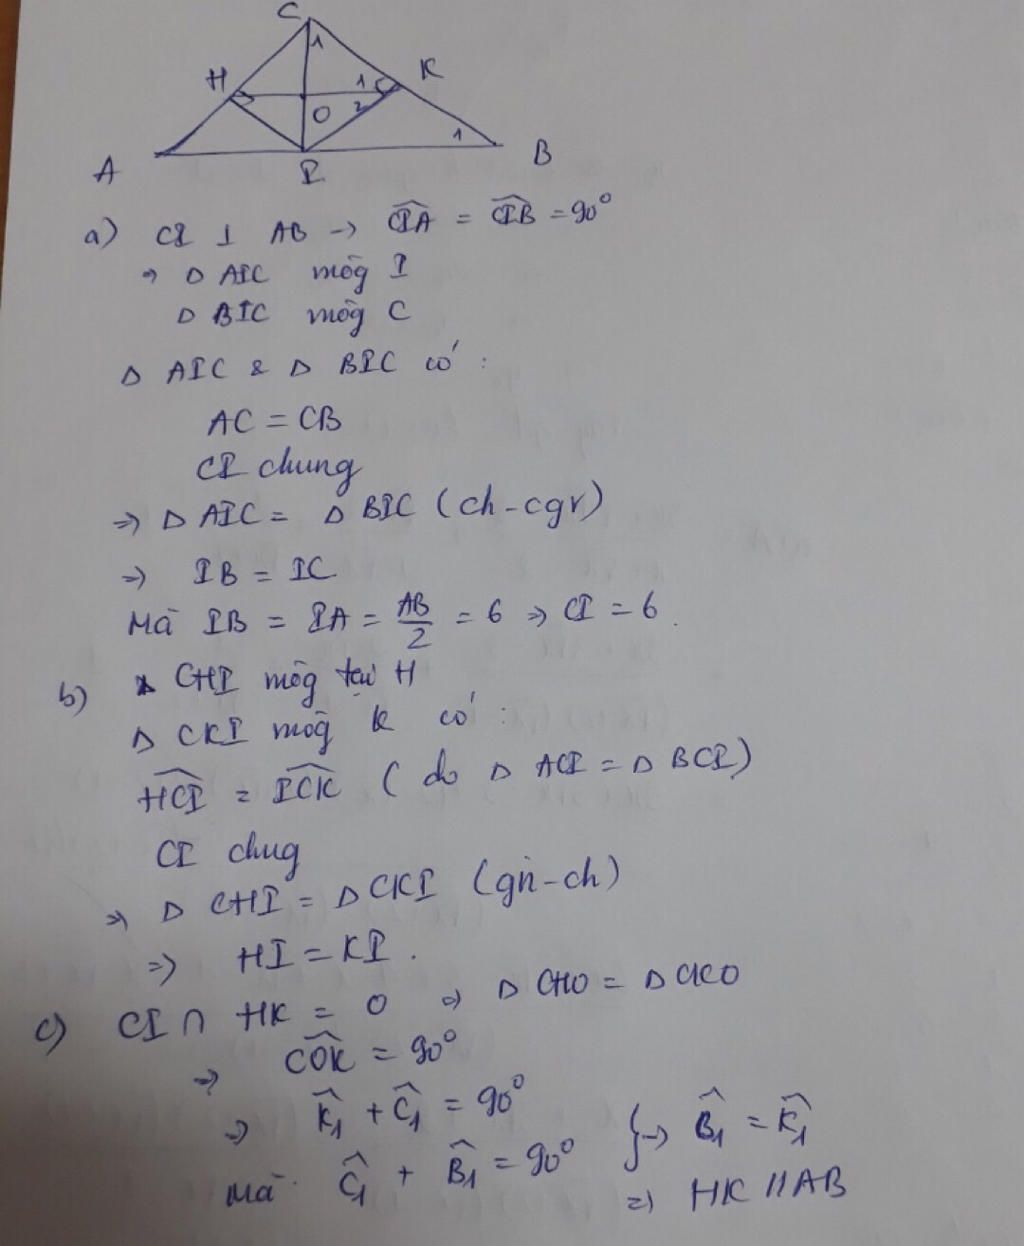 C
1
H
1
K
O
2
1
A
I
B
a) CI ⊥ AB → \widehat{CIA} = \widehat{CIB} = 90°
⇒ Δ AIC \overline{mog} I
Δ BIC \overline{mog} C
Δ AIC & Δ BIC có :
AC = CB
CI chung
⇒ Δ AIC = Δ BIC (ch-cgv)
⇒ IB = IC
Mà IB = IA = \frac{AB}{2} = 6 ⇒ CI = 6.
b) Δ CHI \overline{mog} tại H
Δ CKI \overline{mog} K có :
\widehat{HCI} = \widehat{ICK} ( do Δ ACI = Δ BCI)
CI chug
⇒ Δ CHI = Δ CKI (gn-ch)
⇒ HI = KI.
c) CI ∩ HK = O ⇒ Δ CHO = Δ CKO
⇒ \widehat{COK} = 90°
⇒ \widehat{K_1} + \widehat{C_1} = 90°
Mà \widehat{C_1} + \widehat{B_1} = 90° } → \widehat{B_1} = \widehat{K_1}
⇒ HK // AB